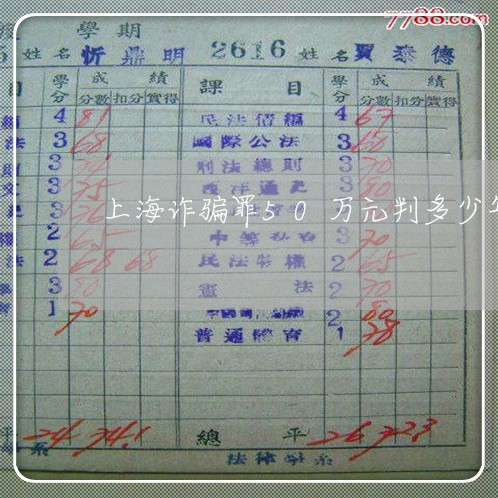 7788.com
學期
姓名 忻鼎明 2616 姓名 賈泰德
目 學分 成績 課目 學分 成績
分數 扣分 實得 分數 扣分 實得
4 81 民法債編 4 67
法 3 68 國際公法 3 60
3 刑法總則 3 70
3 75 西洋通史 3 80
上海诈骗罪50万元判多少年
2 65 3 70
法 2 68 68 民法物權 2 65
3 80 憲法 2 70
1 70 2 80
普通體育 1 78
平 24 74.1 總平 26 72.3
系 法律學系